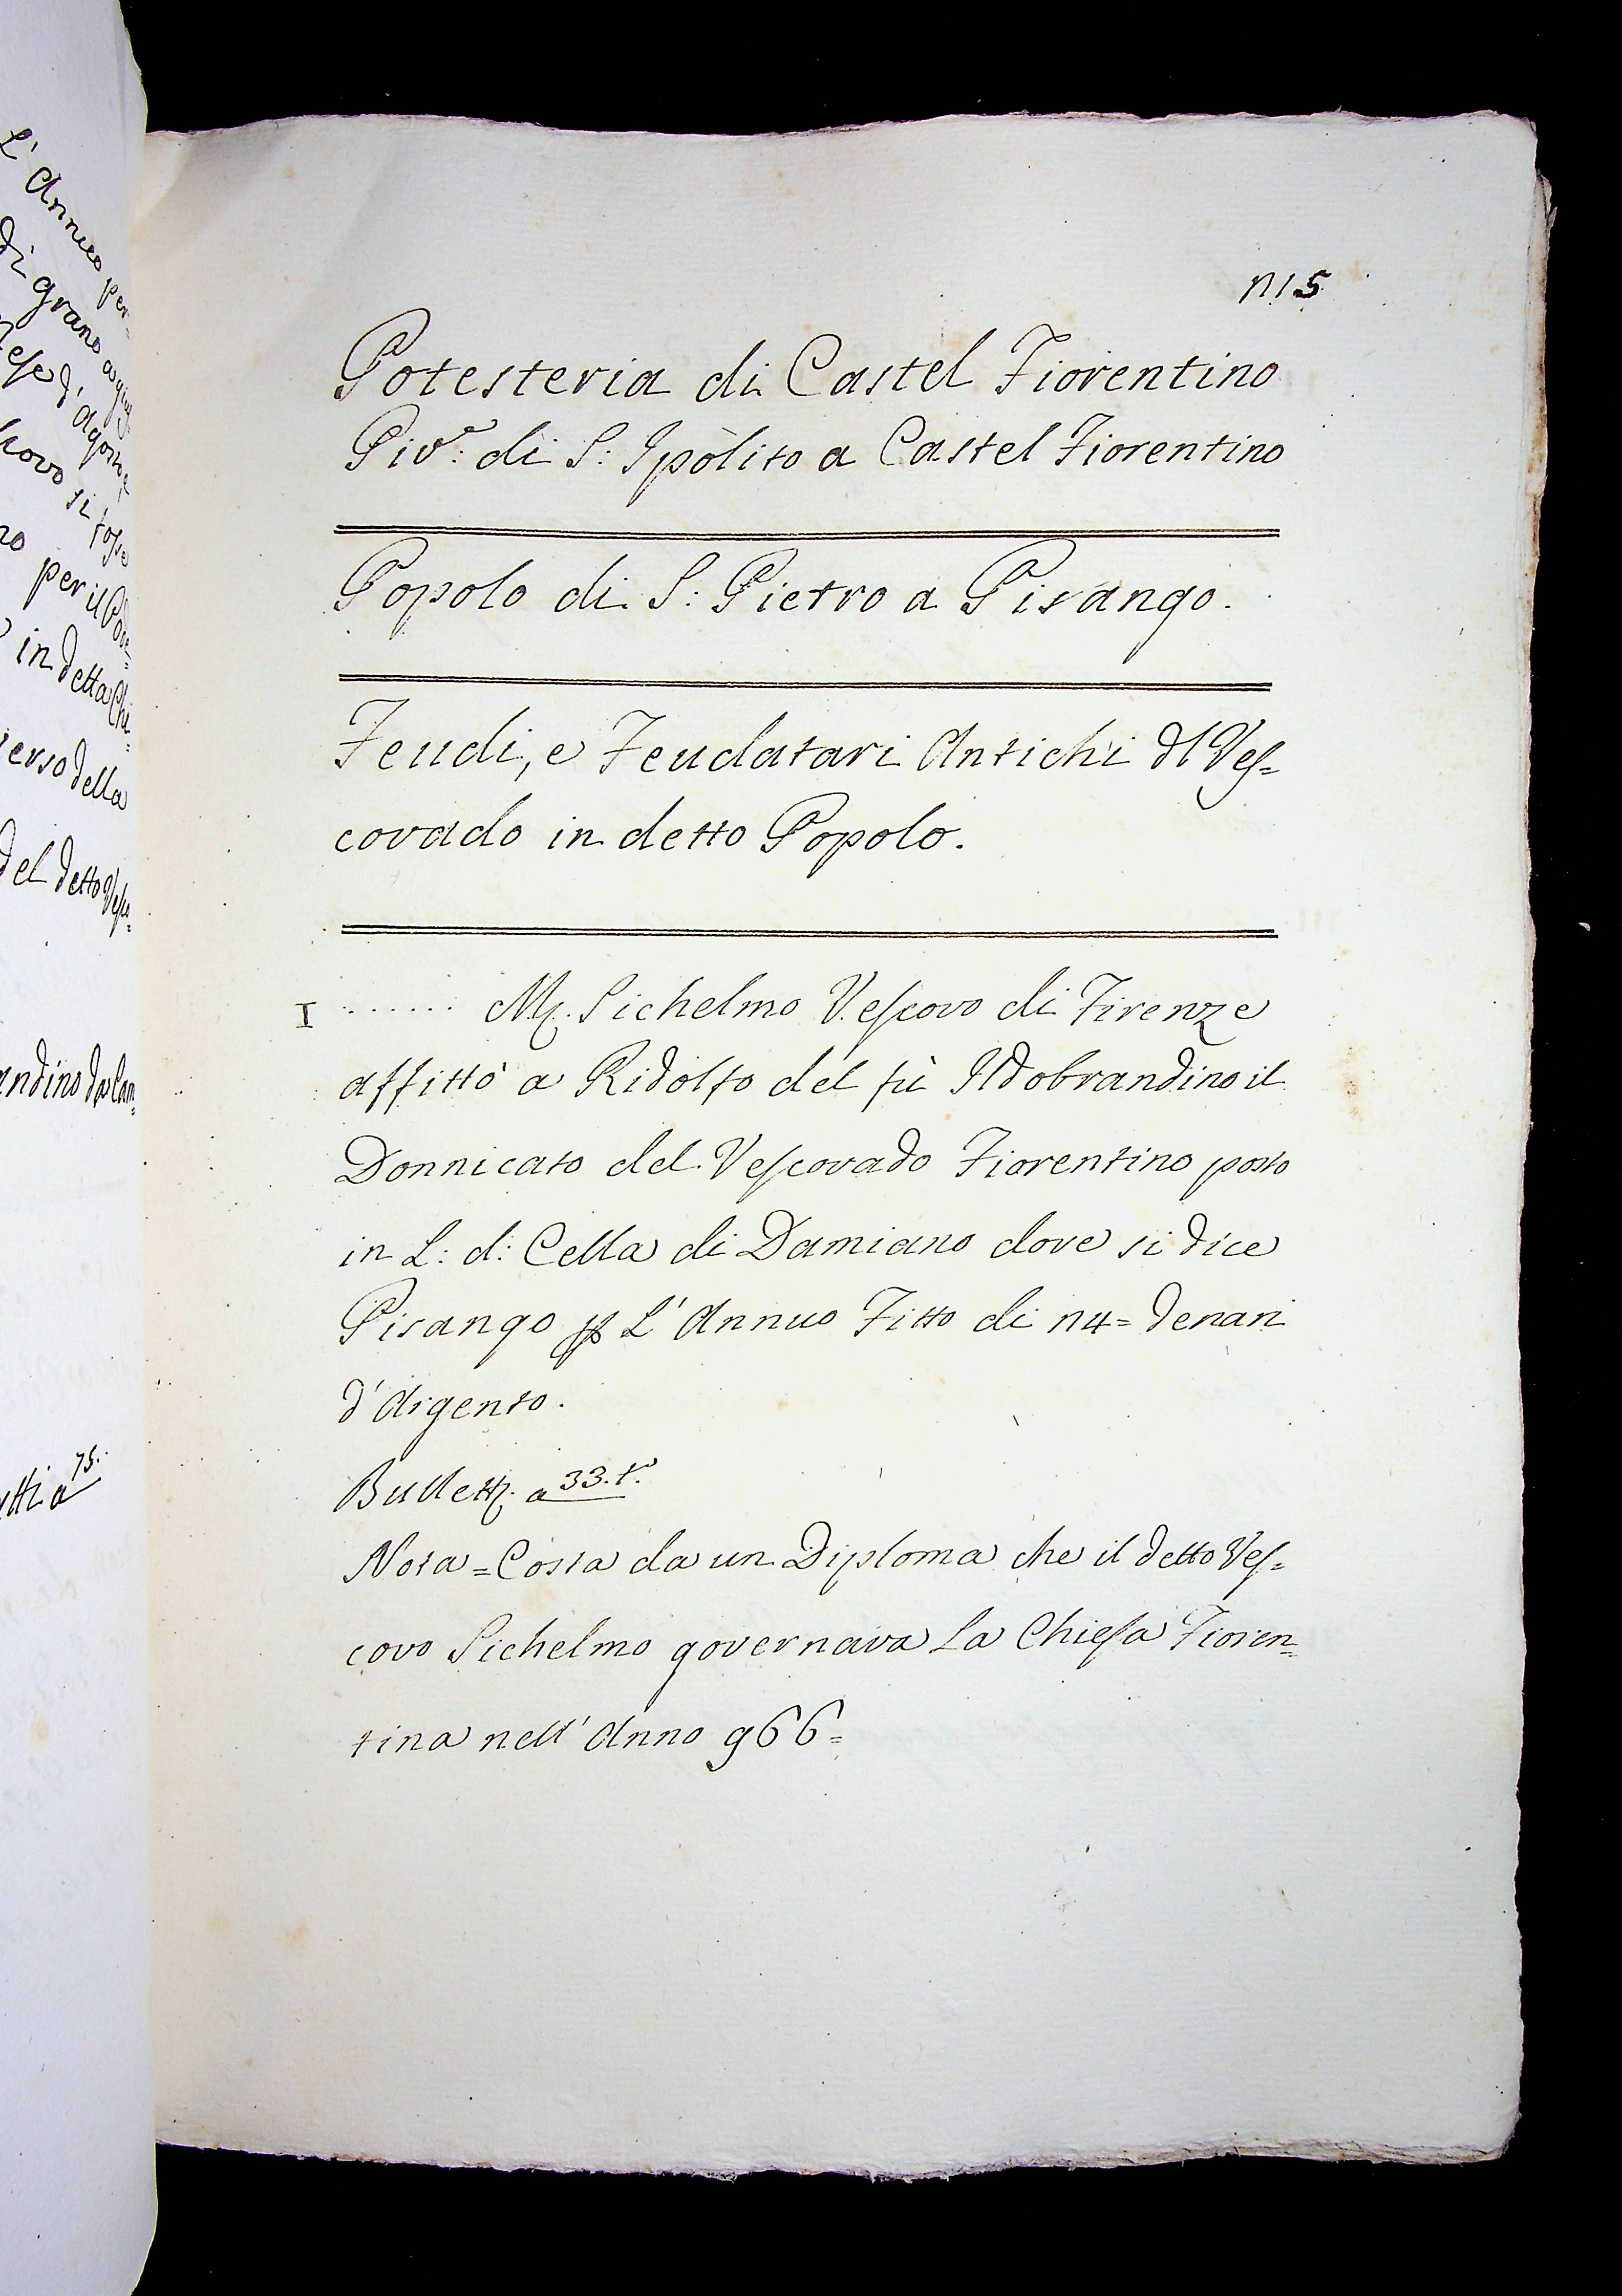 L' Annuo per=
di grano
d' Agosto
scovo si
per il
in detta Chi=
verso della
del detto Vesco=
75.
n15
Potesteria di Castel Fiorentino
Piv.e: di S: Ipòlito a Castel Fiorentino
Popolo di S: Pietro a Pisango.
Feudi, e Feudatari Antichi dl Ves=
covado in detto Popolo.
I ....... Mg. Sichelmo Vescovo di Firenze
affittò a Ridolfo del fù Ildobrandino il
Donnicato del Vescovado Fiorentino posto
in L: d: Cella di Damiano dove si dice
Pisango p L' Annuo Fitto di n4= Denari
d' Argento.
Bullett. a 33. t.o
Nota = Costa da un Diploma che il detto Ves=
covo Sichelmo governava La Chiesa Fioren=
tina nell' Anno 966=